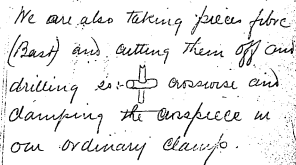 We are also taking pieces fibre
(Bast) and cutting them off and
drilling so:- crosswise and
clamping the crosspiece in
our ordinary clamp.